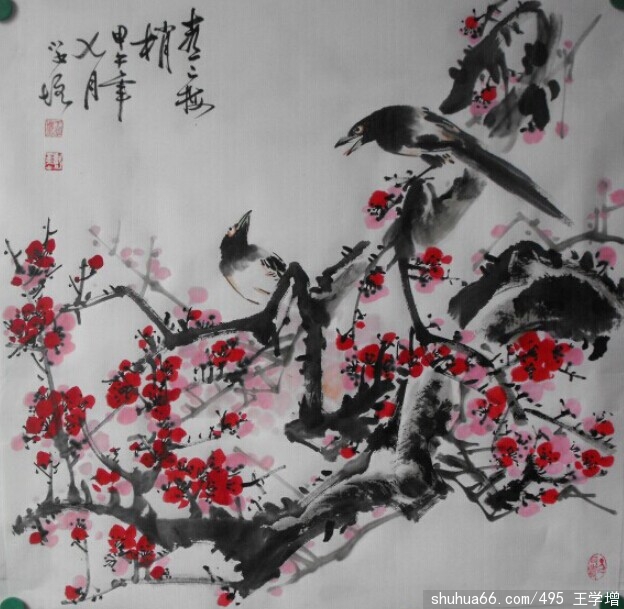 喜上梅
梢
甲午年
月
学增
shuhua66.com/495 王学增